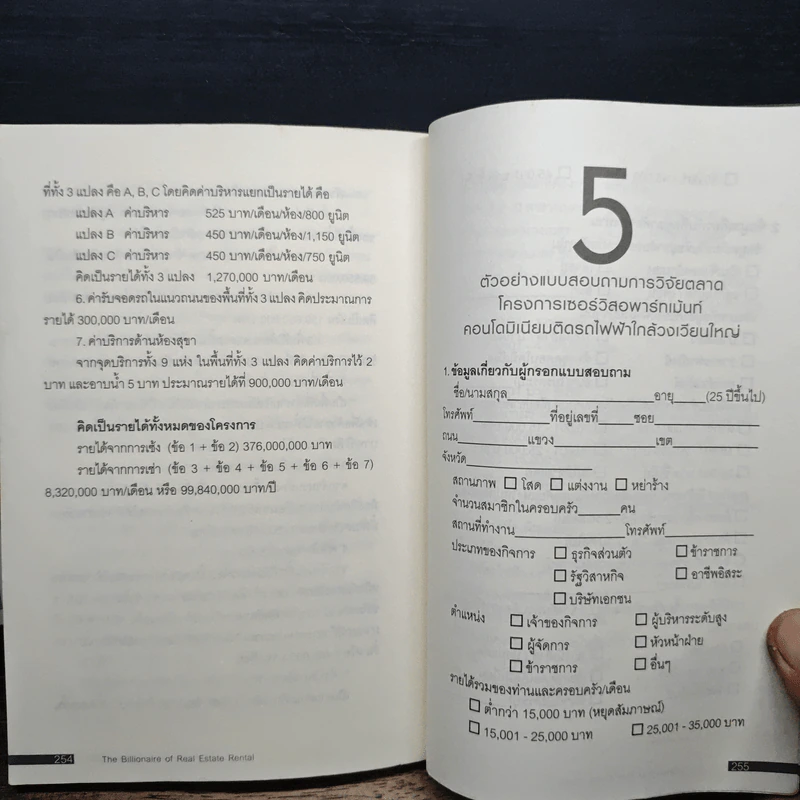 ที่ทั้ง 3 แปลง คือ A, B, C โดยคิดค่าบริหารแยกเป็นรายได้ คือ
แปลง A ค่าบริหาร 525 บาท/เดือน/ห้อง/800 ยูนิต
แปลง B ค่าบริหาร 450 บาท/เดือน/ห้อง/1,150 ยูนิต
แปลง C ค่าบริหาร 450 บาท/เดือน/ห้อง/750 ยูนิต
คิดเป็นรายได้ทั้ง 3 แปลง 1,270,000 บาท/เดือน
6. ค่ารับจอดรถในแนวถนนของพื้นที่ทั้ง 3 แปลง คิดประมาณการ
รายได้ 300,000 บาท/เดือน
7. ค่าบริการด้านห้องสุขา
จากจุดบริการทั้ง 9 แห่ง ในพื้นที่ทั้ง 3 แปลง คิดค่าบริการไว้ 2
บาท และอาบน้ำ 5 บาท ประมาณรายได้ที่ 900,000 บาท/เดือน
คิดเป็นรายได้ทั้งหมดของโครงการ
รายได้จากการเซ้ง (ข้อ 1 + ข้อ 2) 376,000,000 บาท
รายได้จากการเช่า (ข้อ 3 + ข้อ 4 + ข้อ 5 + ข้อ 6 + ข้อ 7)
8,320,000 บาท/เดือน หรือ 99,840,000 บาท/ปี
254 The Billionaire of Real Estate Rental
5
ตัวอย่างแบบสอบถามการวิจัยตลาด
โครงการเซอร์วิสอพาร์ทเม้นท์
คอนโดมิเนียมติดรถไฟฟ้าใกล้วงเวียนใหญ่
1. ข้อมูลเกี่ยวกับผู้กรอกแบบสอบถาม
ชื่อ/นามสกุล อายุ (25 ปีขึ้นไป)
โทรศัพท์ ที่อยู่เลขที่ ซอย
ถนน แขวง เขต
จังหวัด
สถานภาพ โสด แต่งงาน หย่าร้าง
จำนวนสมาชิกในครอบครัว คน
สถานที่ทำงาน โทรศัพท์
ประเภทของกิจการ ธุรกิจส่วนตัว ข้าราชการ
รัฐวิสาหกิจ อาชีพอิสระ
บริษัทเอกชน
ตำแหน่ง เจ้าของกิจการ ผู้บริหารระดับสูง
ผู้จัดการ หัวหน้าฝ่าย
ข้าราชการ อื่นๆ
รายได้รวมของท่านและครอบครัว/เดือน
ต่ำกว่า 15,000 บาท (หยุดสัมภาษณ์)
15,001 - 25,000 บาท 25,001 - 35,000 บาท
255